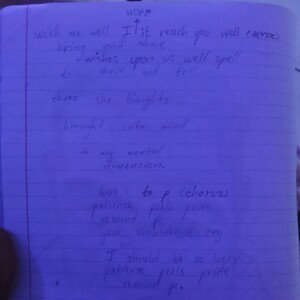 HOPE
Wish me well I it reach you well (verse)
bring and share
wishes upon us well spell
to show and tell
share the thoughts
brought into mind
in my mental
dimension.
here's to p (chorus)
patience peels pride
remind p.
your shoulder to cry
on
I should be so lucky
patience peels pride
remind p.